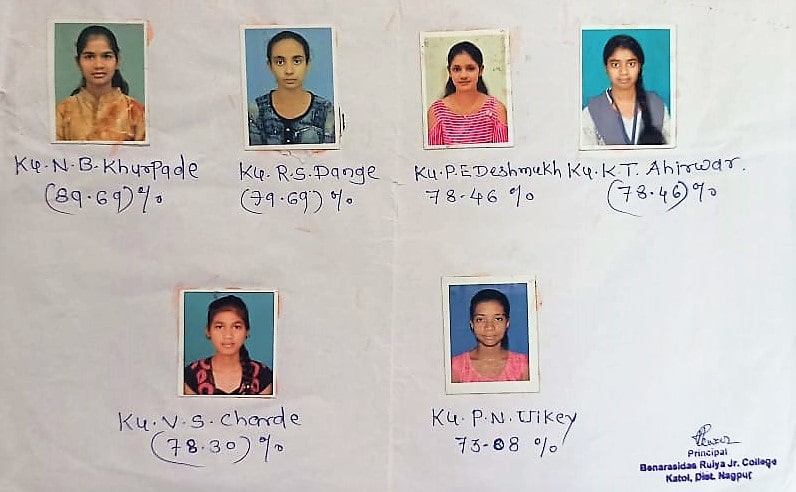 Ku. N. B. Khurpade
(89.69) %
Ku. R. S. Dange
(79.69) %
Ku. P. E Deshmukh
78.46 %
Ku. K. T. Ahirwar.
(78.46) %
Ku. V. S. Charde
(78.30) %
Ku. P. N. Uikey
73.08 %
Principal
Benarasidas Ruiya Jr. College
Katol, Dist. Nagpur